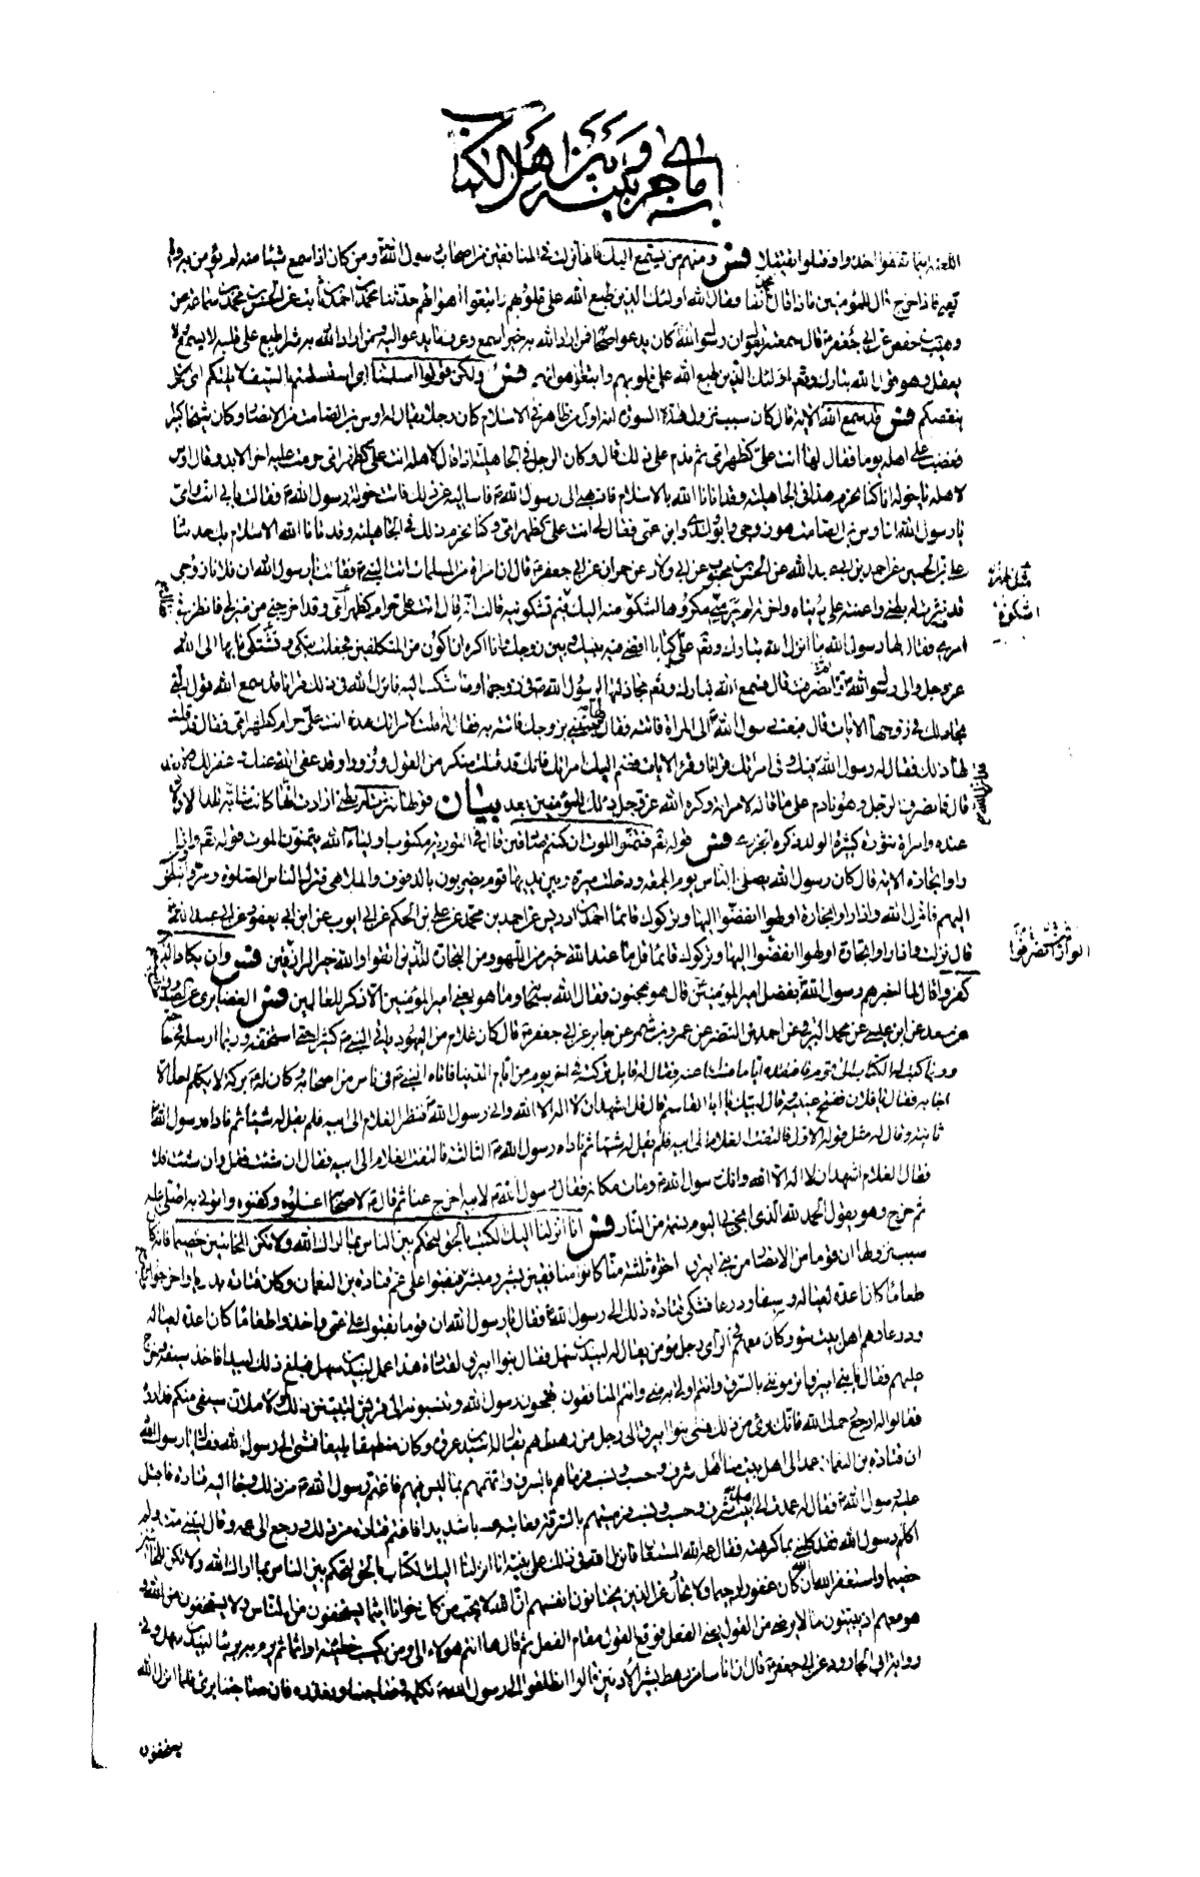 ما جرى بينه وبين اهل الكتاب
اللعنة اينما ثقفوا اخذوا وقتلوا تقتيلا فس ومنهم من يستمع اليك فانها نزلت في المنافقين من اصحاب رسول الله ومن كان اذا سمع شيئا منه لم يؤمن به ولم
خرج قال للمؤمنين ماذا قال محمد آنفا فقال الله اولئك الذين طبع الله على قلوبهم واتبعوا اهوائهم حدثنا محمد بن احمد بن ثابت عن الحسن بن محمد بن سماعة عن
وهيب بن حفص عن ابي جعفر قال سمعته يقول ان رسول الله كان يدعو اصحابه فمن اراد الله به خيرا سمع وعرف ما يدعو اليه ومن اراد الله به شرا طبع على قلبه لا يسمع ولا
يعقل وهو قول الله تبارك وتعم اولئك الذين طبع الله على قلوبهم واتبعوا اهوائهم فس ولكن قولوا اسلمنا اي استسلمتم بالسيف لا يلتكم اي لا
ينقصكم فس قد سمع الله الاية قال كان سبب نزول هذه السورة انه اول من ظاهر في الاسلام كان رجلا يقال له اوس بن الصامت من الانصار وكان شيخا كبيرا
فغضب على اهله يوما فقال لها انت علي كظهر امي ثم ندم على ذلك قال وكان الرجل في الجاهلية اذا قال لاهله انت علي كظهر امي حرمت عليه اخر الابد وقال اوس
لاهله يا خولة انا كنا نحرم هذا في الجاهلية وقد اتانا الله بالاسلام فاذهبي الى رسول الله فاساليه عن ذلك فاتت خولة رسول الله فقالت بابي انت وامي
يا رسول الله ان اوس بن الصامت هو زوجي وابو ولدي وابن عمي فقال لي انت علي كظهر امي وكنا نحرم ذلك في الجاهلية وقد اتانا الله الاسلام بك حدثنا
علي بن الحسين عن احمد بن ابي عبد الله عن الحسن بن محبوب عن ابي ولاد عن حمران عن ابي جعفر قال ان امراة من المسلمات اتت النبي فقالت يا رسول الله ان فلانا زوجي
قد نثرت له بطني واعنته على دنياه واخرته لم ير مني مكروها اشكوه منه اليك فبم تشكونيه قالت انه قال انت علي حرام كظهر امي وقد اخرجني من منزلي فانظر في
امري فقال لها رسول الله ما انزل الله تبارك وتعم علي كتابا اقضي فيه بينك وبين زوجك وانا اكره ان اكون من المتكلفين فجعلت تبكي وتشتكي ما بها الى الله
عز وجل والى رسول الله وانصرفت قال فسمع الله تبارك وتعم مجادلتها لرسول الله في زوجها وما شكت اليه فانزل الله في ذلك قرانا قد سمع الله قول التي
تجادلك في زوجها الايات قال فبعث رسول الله الى المراة فاتته فقال لها جيئيني بزوجك فاتت به فقال له اقلت لامراتك هذه انت علي حرام كظهر امي فقال قد قلت
لها ذلك فقال له رسول الله قد انزل الله فيك وفي امراتك قرانا وقرء الايات فضم اليك امراتك فانك قد قلت منكرا من القول وزورا وقد عفى الله عنك وغفر لك
قال فانصرف الرجل وهو نادم على ما قاله لامراته وكره الله عز وجل ذلك للمؤمنين بعد بيان قولها نثرت له بطني ارادت انها كانت شابة تلد الاولاد
عنده وامراة نثور كثيرة الولد ذكره الجزري فس قوله تعم فتمنوا الموت ان كنتم صادقين قال في التورية مكتوب اولياء الله يتمنون الموت قوله تعم واذا
راوا تجارة الاية قال كان رسول الله يصلي بالناس يوم الجمعة ودخلت ميرة وبين يديها قوم يضربون بالدفوف والملاهي فترك الناس الصلوة ومروا ينظرون
اليهم فانزل الله واذا راوا تجارة او لهوا انفضوا اليها وتركوك قائما احمد بن ادريس عن احمد بن محمد عن علي بن الحكم عن ابي ايوب عن ابن ابي يعفور عن ابي عبد الله
قال نزلت واذا راوا تجارة او لهوا انفضوا اليها وتركوك قائما قل ما عند الله خير من اللهو ومن التجارة للذين اتقوا والله خير الرازقين فس وان يكاد الذين
كفروا قال لما اخبرهم رسول الله بفضل امير المؤمنين قال هو مجنون فقال الله سبحانه وما هو يعني امير المؤمنين الا ذكر للعالمين فس
عن سعد عن ابن عيسى عن محمد البرقي عن احمد بن النضر عن عمرو بن شمر عن جابر عن ابي جعفر قال كان غلام من اليهود ياتي النبي كثيرا حتى استخفه وربما ارسله في حاجة
وربما كتب له الكتاب الى قوم فافتقده اياما فسئل عنه فقال له قائل تركته في اخر يوم من ايام الدنيا فاتاه النبي في ناس من اصحابه وكان له بركة لا يكلم احدا الا
اجابه فقال يا فلان ففتح عينيه قال لبيك يا ابا القاسم قال قل اشهد ان لا اله الا الله واني رسول الله فنظر الغلام الى ابيه فلم يقل له شيئا ثم ناداه رسول الله
ثانية وقال له مثل قوله الاول فالتفت الغلام الى ابيه فلم يقل له شيئا ثم ناداه رسول الله الثالثة فالتفت الغلام الى ابيه فقال ان شئت فقل وان شئت فلا
فقال الغلام اشهد ان لا اله الا الله وانك رسول الله ومات مكانه فقال رسول الله لابيه اخرج عنا ثم قال لاصحابه اغسلوه وكفنوه واتوني به اصلي عليه
ثم خرج وهو يقول الحمد لله الذي انجى بي اليوم نسمة من النار فس انا انزلنا اليك الكتب بالحق لتحكم بين الناس بما اراك الله ولا تكن للخائنين خصيما
سبب نزولها ان قوما من الانصار من بني ابيرق اخوة ثلثة كانوا منافقين بشير ومبشر وبشر فنقبوا على عم قتادة بن النعمان وكان قتادة بدريا واخرجوا
طعاما كان اعده لعياله وسيفا ودرعا فشكى قتادة ذلك الى رسول الله فقال يا رسول الله ان قوما نقبوا على عمي واخذوا طعاما كان اعده لعياله
ودرعا وهم اهل بيت سوء وكان معهم في الراي رجل مؤمن يقال له لبيد بن سهل فقال بنو ابيرق لقتادة هذا عمل لبيد بن سهل فبلغ ذلك لبيدا فاخذ سيفه وخرج
عليهم فقال يا بني ابيرق اترمونني بالسرق وانتم اولى به مني وانتم المنافقون تهجون رسول الله وتنسبونه الى قريش لتبينن ذلك او لاملان سيفي منكم فداروه
فقالوا له ارجع رحمك الله فانك برئ من ذلك فمشى بنو ابيرق الى رجل من رهطهم يقال له اسيد بن عروة وكان منطيقا بليغا فمشى الى رسول الله فقال يا رسول الله
ان قتادة بن النعمان عمد الى اهل بيت منا اهل شرف وحسب ونسب فرماهم بالسرق واتهمهم بما ليس فيهم فاغتم رسول الله من ذلك وجاء اليه قتادة فاقبل
عليه رسول الله فقال له عمدت الى اهل بيت شرف وحسب ونسب فرميتهم بالسرقة وعاتبه عتابا شديدا فاغتم قتادة من ذلك ورجع الى عمه وقال ليتني مت ولم
اكلم رسول الله فقد كلمني بما كرهته فقال عمه الله المستعان فانزل الله في ذلك على نبيه انا انزلنا اليك الكتاب بالحق لتحكم بين الناس بما اراك الله ولا تكن للخائنين
خصيما واستغفر الله ان الله كان غفورا رحيما ولا تجادل عن الذين يختانون انفسهم ان الله لا يحب من كان خوانا اثيما يستخفون من الناس ولا يستخفون من الله و
هو معهم اذ يبيتون ما لا يرضى من القول يعني الفعل فوقع القول مقام الفعل ثم قال ها انتم هؤلاء الى ومن يكسب خطيئة او اثما ثم يرم به بريئا لبيد بن سهل وفي
رواية ابي الجارود عن ابي جعفر قال ان اناسا من رهط بشير الادنين قالوا انطلقوا الى رسول الله نكلمه في صاحبنا ونعذره فان صاحبنا برئ فلما انزل الله
يستخفون